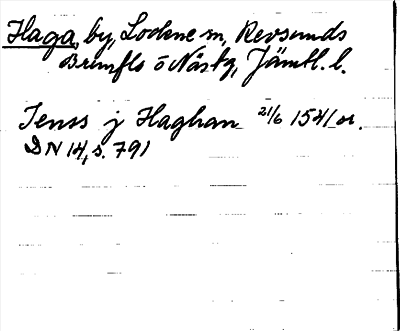 Haga, by, Lockne sn, Revsunds
Brunflo o Näskg, Jämtl. l.
Jenss j Haghan 21/6 1541 or.
DN 14, s. 791